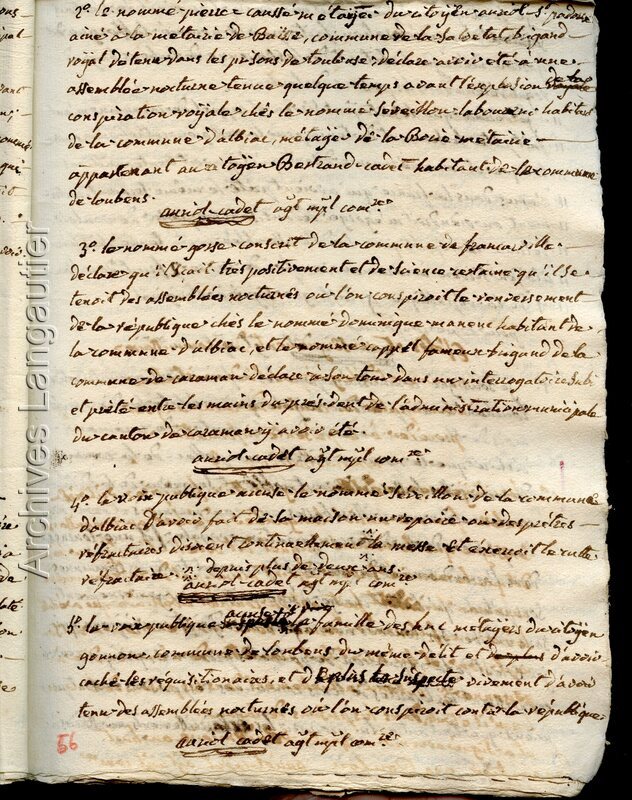 2o. le nommé pierre causse métayer du citoyen auriol
ainé a la métairie de Baisse, commune de la Salvetat, brigand
royal détenu dans les prisons de toulouse déclare avoir été a une
assemblée nocturne tenue quelque tems avant l'explosion de la
conspiration royale chés le nommé Séveillou laboureur habitant
de la commune d'albiac, métayer de la Borie métairie
appartenant au citoyen Bertrand cadet habitant de la commune
de loubens.
auriol cadet agt mpl comre.
3o. le nommé gorse conscrit de la commune de francarville
déclare qu'il sait très positivement et de science certaine qu'il se
tenoit des assemblées nocturnes où l'on conspiroit le renversement
de la république chés le nommé dominique manenc habitant de
la commune d'albiac, et le nommé coppel fameux brigand de la
commune de caraman déclare à son tour dans un interrogatoire subi
et prêté entre les mains du président de l'administration municipale
du canton de caraman y avoir été.
auriol cadet agt mpl comre
4o. la voix publique accuse le nommé Séveillou de la commune
d'albiac d'avoir fait de sa maison un repaire où des prêtres
réfractaires disoient continuellement la messe et éxerçoit le culte
réfractaire depuis plus de deux ans.
auriol cadet agt mpl comre
5o. la voix publique accuse la famille des métayers du citoyen
gounon, commune de loubens du même délit et de plus d'avoir
caché les réquisitionaires, et de plus les suspecte vivement d'avoir
tenu des assemblées nocturnes où l'on conspiroit contre la république.
auriol cadet agt mpl comre.
56
Archives Langautier